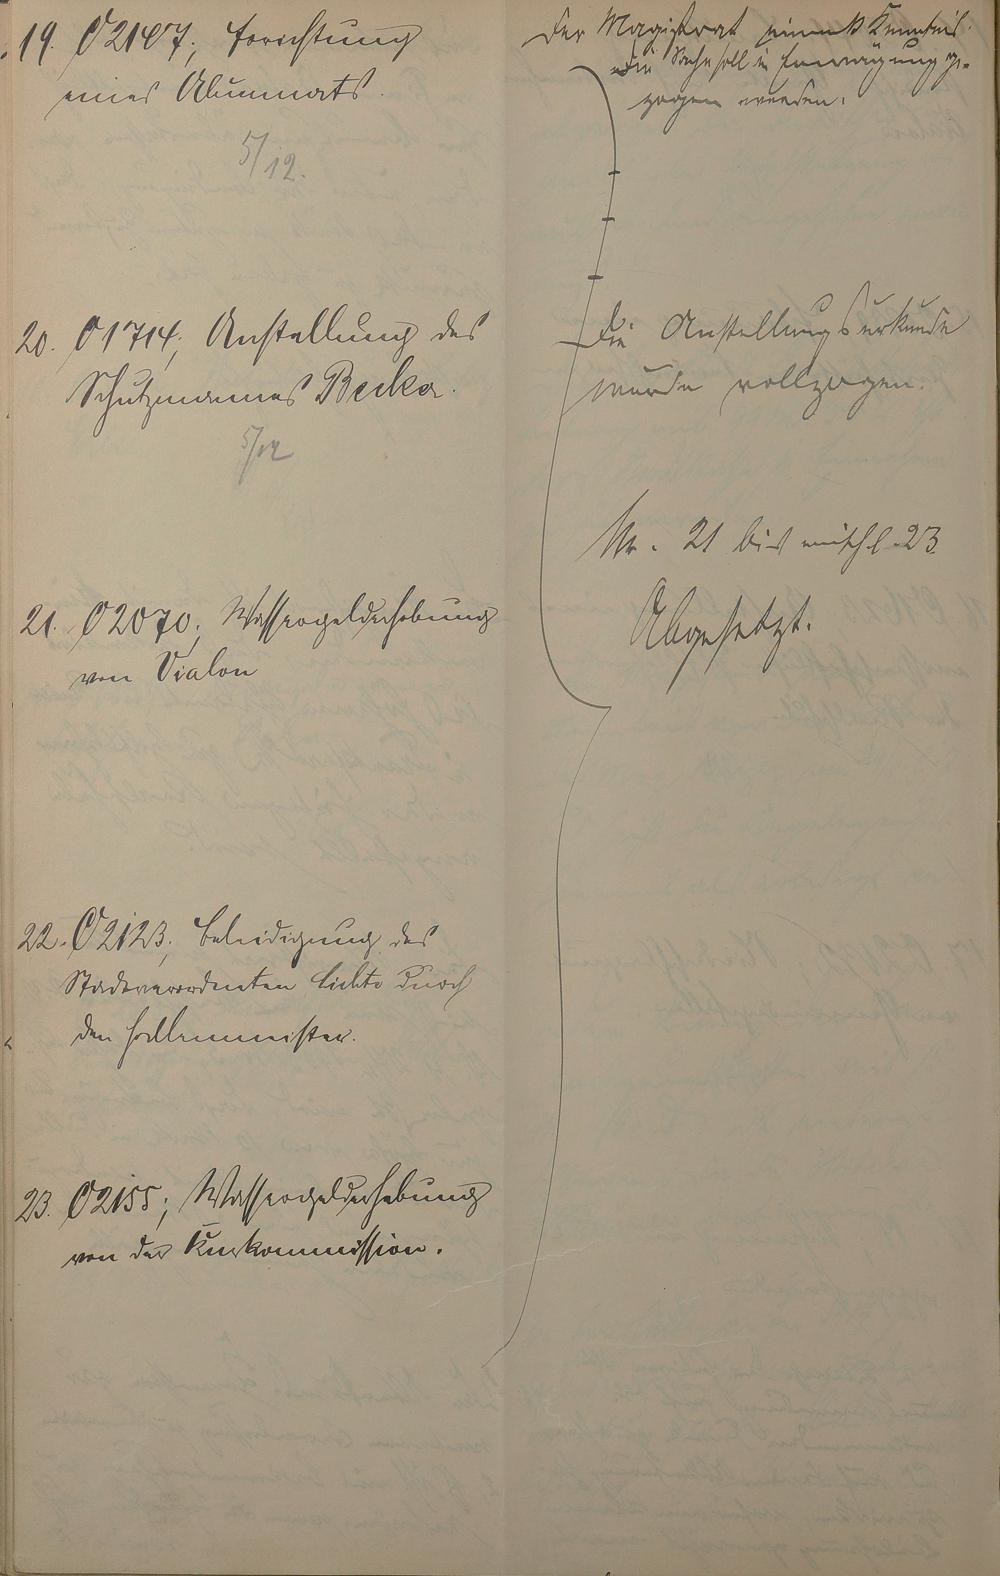 19. O2107; Errichtung
eines Alumnats.
5/12.
Der Magistrat nimmt Kenntnis.
Die Sache soll in Erwägung ge-
zogen werden.
20. O1714; Anstellung des
Schutzmannes Becker.
5/12
Die Anstellungsurkunde
wurde vollzogen.
Nr. 21 bis einschl. 23
Abgesetzt.
21. O2070; Wassergelderhebung
von Vialon
22. O2123; Beleidigung des
Stadtverordneten Lichte durch
den Hallenmeister.
23. O2155; Wassergelderhebung
von der Kurkommission.